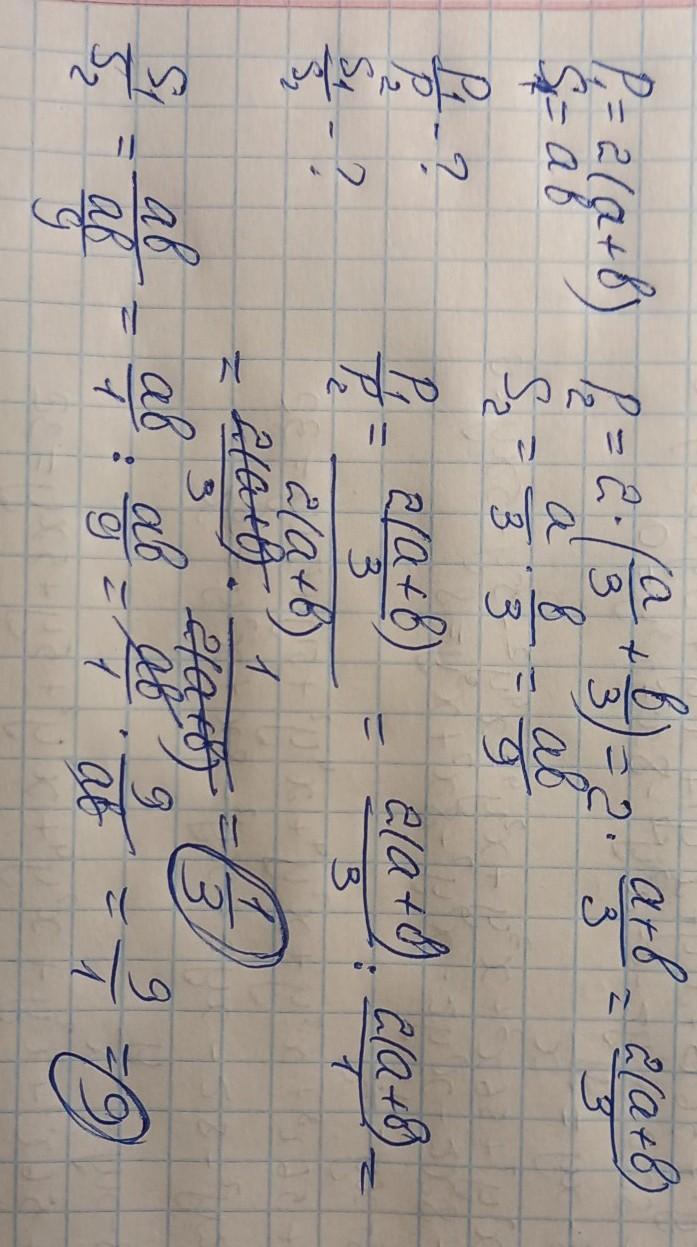 P₁ = 2(a+b) P₂ = 2·(a/3 + b/3) = 2· (a+b)/3 = 2(a+b)/3
S₁ = ab S₂ = a/3 · b/3 = ab/9
P₁/P₂ - ? P₁/P₂ = (2(a+b)/3)/(2(a+b)) = 2(a+b)/3 : 2(a+b)/1 =
S₁/S₂ - ?
= 2(a+b)/3 · 1/2(a+b) = 1/3
S₁/S₂ = ab/(ab/9) = ab/1 : ab/9 = ab/1 · 9/ab = 9/1 = 9